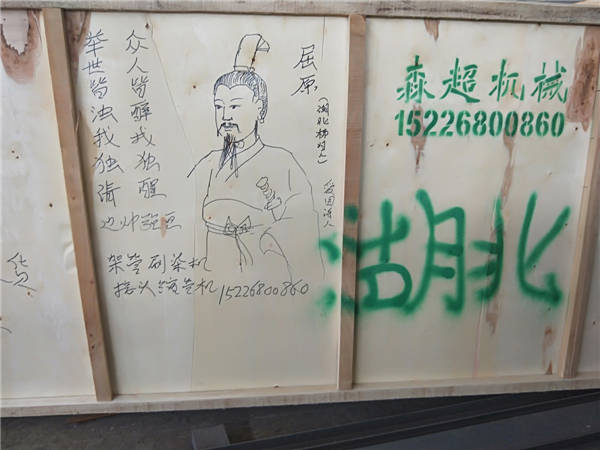 举世皆浊我独清
众人皆醉我独醒
屈原
(湖北秭归人)
爱国诗人
架管刷柒机
接头缩管机15226800860
森超机械
15226800860
湖北